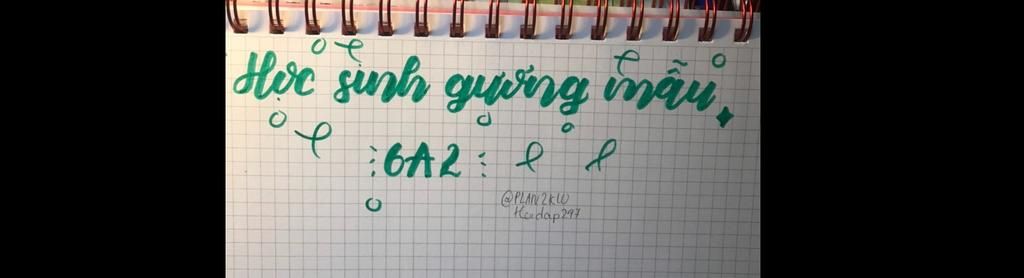 Học sinh gương mẫu
6A2
@PLAN2KW
Hoidap247